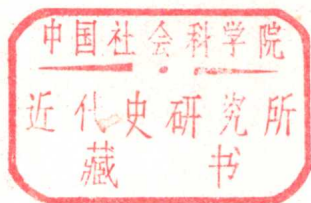 中国社会科学院
近代史研究所
藏书